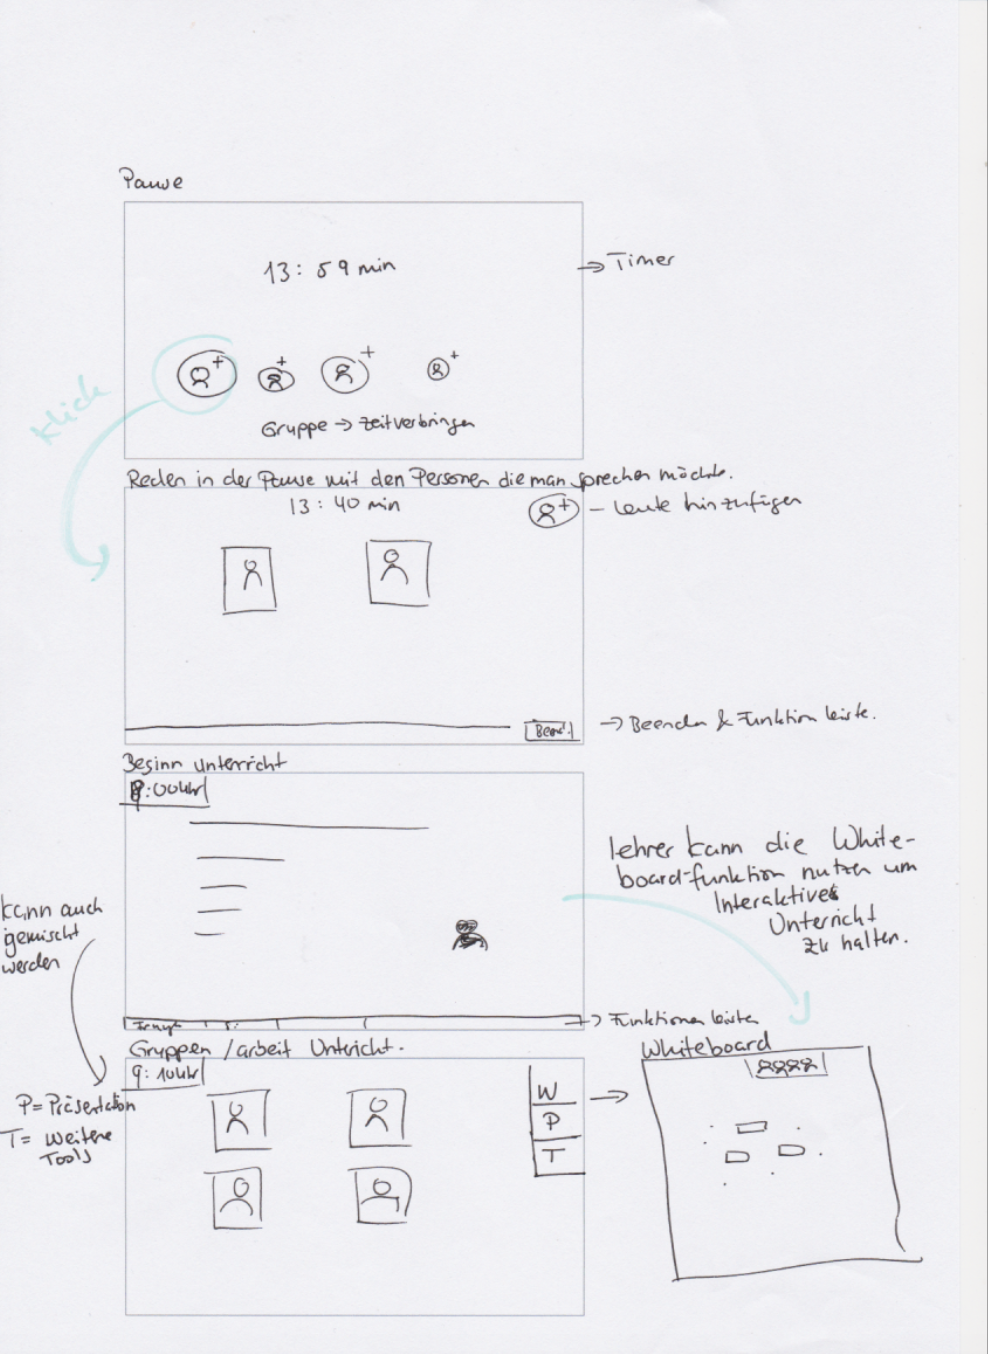 Pause
13:59 min
→ Timer
Klick
Gruppe → Zeitverbringen
Reden in der Pause mit den Personen die man sprechen möchte.
13:40 min
– Leute hinzufügen
Beend.
→ Beenden & Funktion leiste.
Beginn unterricht
:00Uhr
lehrer kann die White-
board-funktion nutzen um
Interaktives
Unterricht
zu halten.
kann auch
gemischt
werden
→ Funktionen leisten
Gruppen /arbeit Untericht.
9:10Uhr
W
P
T
P=Präsentation
T= weitere
Tools
Whiteboard